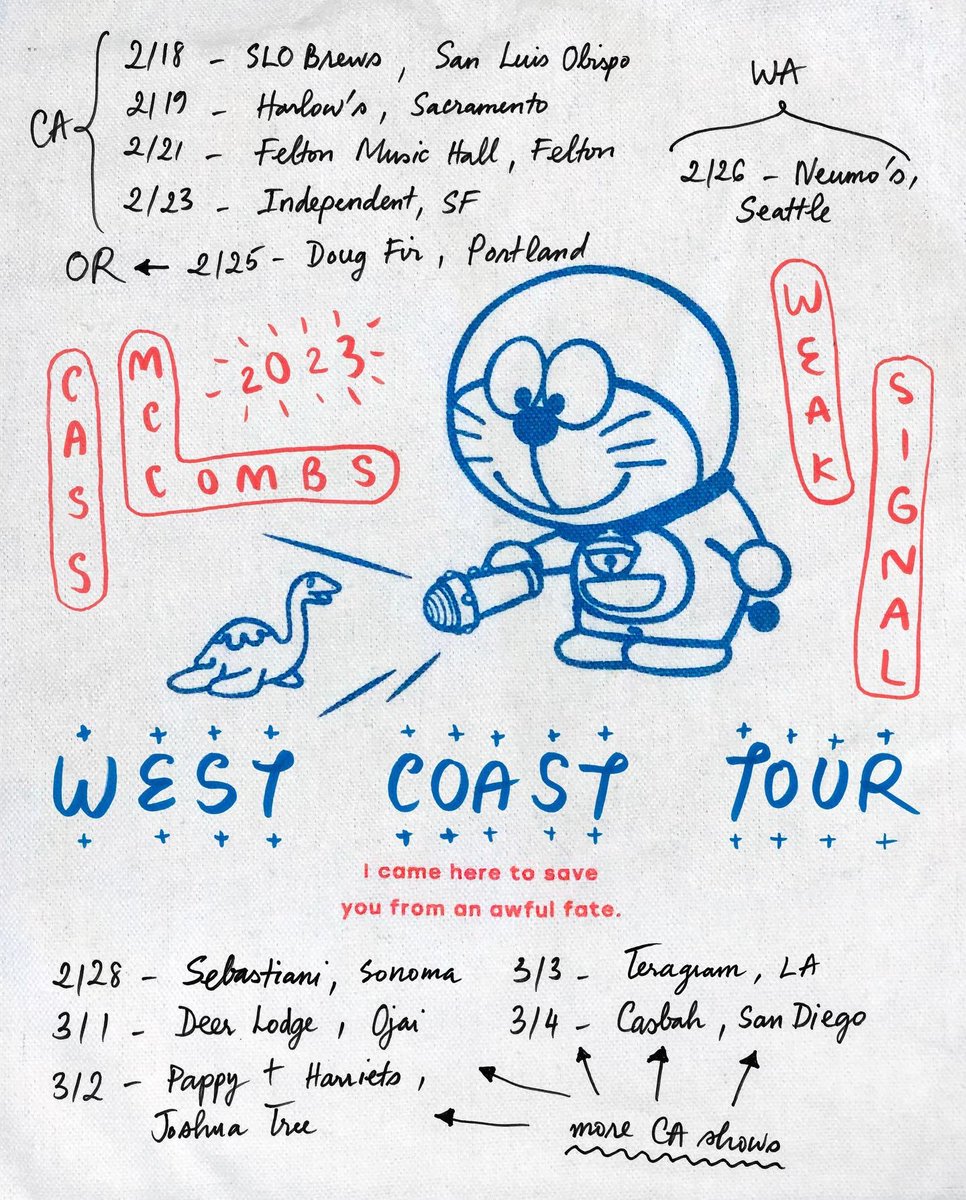 CA
2/18 - SLO Brews, San Luis Obispo
2/19 - Harlow's, Sacramento
2/21 - Felton Music Hall, Felton
2/23 - Independent, SF
OR ← 2/25 - Doug Fir, Portland
WA
2/26 - Neumo's,
Seattle
CASS
MCCOMBS
2023
WEAK
SIGNAL
WEST COAST TOUR
I came here to save
you from an awful fate.
2/28 - Sebastiani, Sonoma
3/1 - Deer Lodge, Ojai
3/2 - Pappy + Harriets,
Joshua Tree
3/3 - Teragram, LA
3/4 - Casbah, San Diego
more CA shows